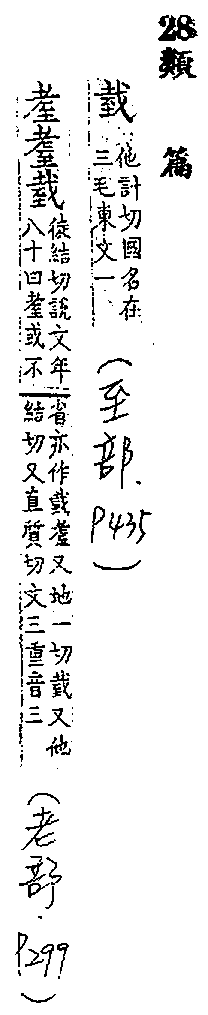 28類 篇
臷 他計切國名在三毛東文一 (至部. P435)
耊耋臷 徒結切說文年八十曰耊或不省亦作臷耋又地一切臷又他結切又直質切文三重音三 (老部. P299)